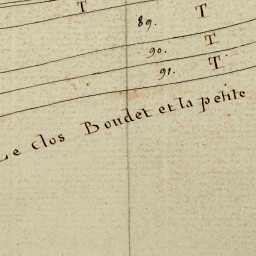 T
89. T
90. T
91. T
Le clos Boudet et la petite